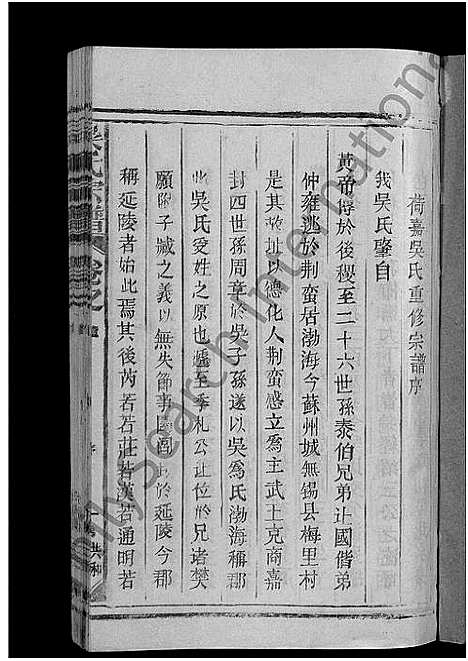 荷嘉吳氏重修宗譜序
我吳氏肇自
黃帝傳於後稷至二十六世孫泰伯兄弟让國偕弟
仲雍逃於荆蛮居渤海今蘇州城無锡县梅里村
是其故址以德化人荆蛮感立為主武王克商嘉
封四世孫周章於吳子孫遂以吳為氏渤海稱郡
此吳氏受姓之原也爐至季札公让位於兄诸樊
願附子臧之義以無失節事 封於延陵今郡
稱延陵者始此焉其後芮若若莊若漢若通明若
氏宗譜 卷之
My Search International